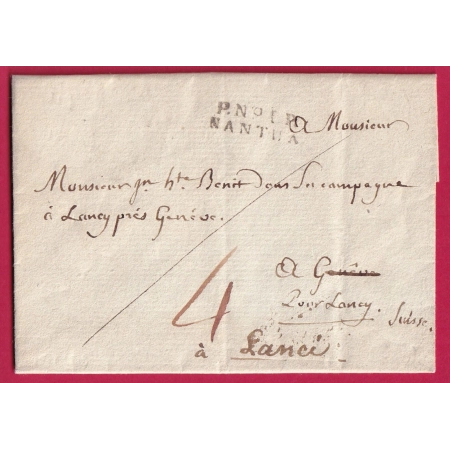 P.Nº1.P.
NANTUA
A Monsieur
Monsieur Jn hte Benit dans sa campagne
à Lancy près Genève.
A Genève
Pour Lancy.
Suisse.
4
à Lanci